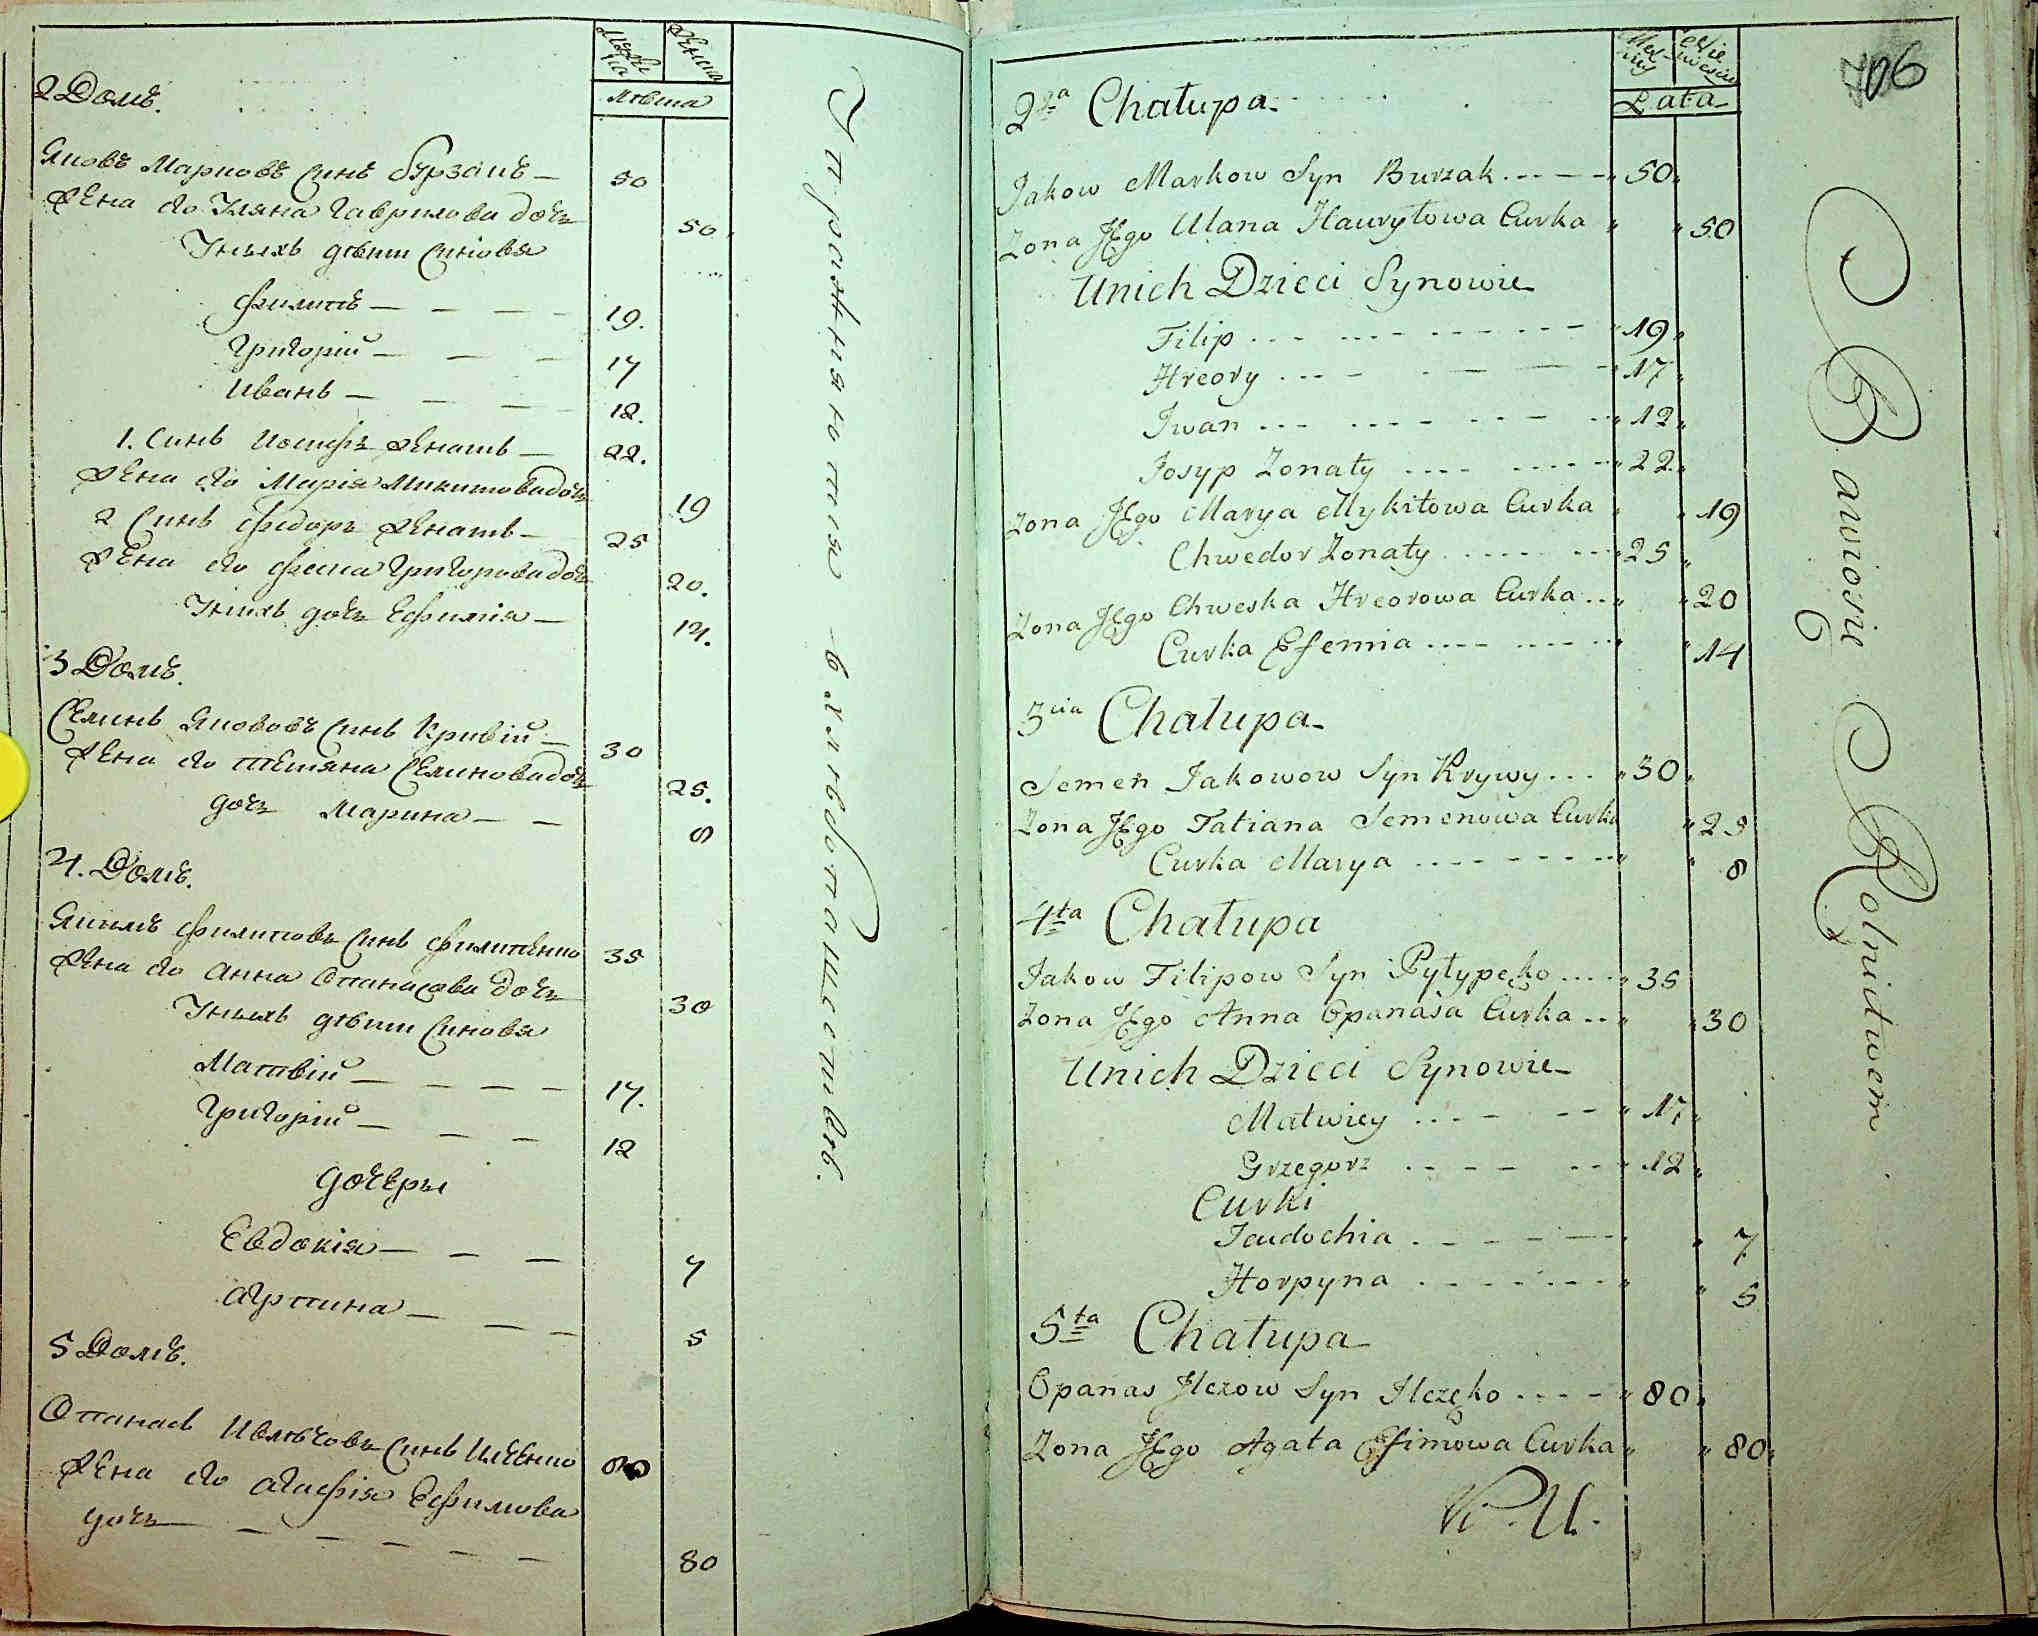 Мужеска
Женска
Лѣта
2 Домъ.
Яковъ Марковъ синъ Бурзакъ — 50
Жена его Уляна Гаврилова дочь 50
У нихъ дѣти синовя
Филипъ — — — — 19.
Григорій — — — 17
Иванъ — — — 12.
1. Синъ Иосифъ женатъ — 22.
Жена его Марія Микитова дочь 19
2 Синъ Федоръ женатъ — 25
Жена его Феска Григорова дочь 20.
У нихъ дочь Ефимія — 14.
3 Домъ.
Семинъ Якововъ синъ Кривій — 30
Жена его Тетяна Семинова дочь 25.
дочь Марина — — 8
4. Домъ.
Якимъ Филиповъ синъ Филипенко 35
Жена его Анна Опанасова дочь 30
У нихъ дѣти синовя
Матвій — — — — 17.
Григорій — — — 12
дочеры
Евдокія — — — 7
Агрпина — — — 5
5 Домъ.
Опанасъ Ивлѣчовъ синъ Илченко 80
Жена его Агафія Ефимова
дочь — — — — — 80
Упражняются в хлѣбопашествѣ.
706
Męż
czyz
Nie
wieście
Lata
2ga Chałupa
Jakow Markow Syn Burzak 50
Żona Jego Ulana Hawryłowa Curka 50
U nich Dzieci Synowie
Filip 19
Hreory 17
Iwan 12
Josyp Żonaty 22
Żona Jego Marya Mykitowa Curka 19
Chwedor Żonaty 25
Żona Jego Chweska Hreorowa Curka 20
Curka Efemia 14
3cia Chałupa
Semen Jakowow Syn Krywy 30
Żona Jego Tatiana Semenowa Curka 25
Curka Marya 8
4ta Chałupa
Jakow Filipow Syn Pyłypęko 35
Żona Jego Anna Opanasa Curka 30
U nich Dzieci Synowie
Matwiey 17
Grzegorz 12
Curki
Jeudochia 7
Horpyna 5
5ta Chałupa
Opanas Ilczow Syn Ilczęko 80
Żona Jego Agata Efimowa Curka 80
V. U.
Bawiosię Rolnictwem